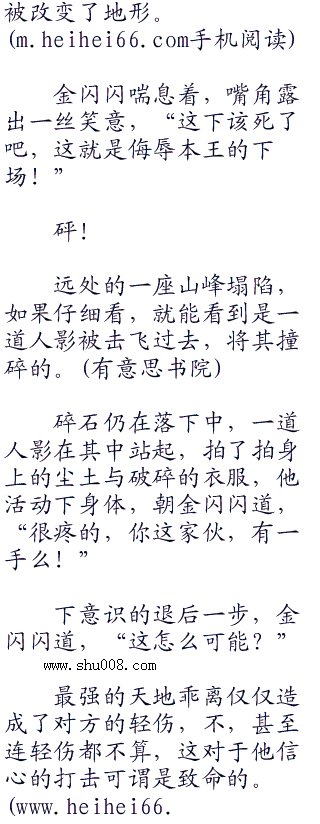 被改变了地形。
(m.heihei66.com手机阅读)
金闪闪喘息着，嘴角露
出一丝笑意，“这下该死了
吧，这就是侮辱本王的下
场！”
砰！
远处的一座山峰塌陷，
如果仔细看，就能看到是一
道人影被击飞过去，将其撞
碎的。(有意思书院)
碎石仍在落下中，一道
人影在其中站起，拍了拍身
上的尘土与破碎的衣服，他
活动下身体，朝金闪闪道，
“很疼的，你这家伙，有一
手么！”
下意识的退后一步，金
闪闪道，“这怎么可能？”
www.shu008.com
最强的天地乖离仅仅造
成了对方的轻伤，不，甚至
连轻伤都不算，这对于他信
心的打击可谓是致命的。
(www.heihei66.